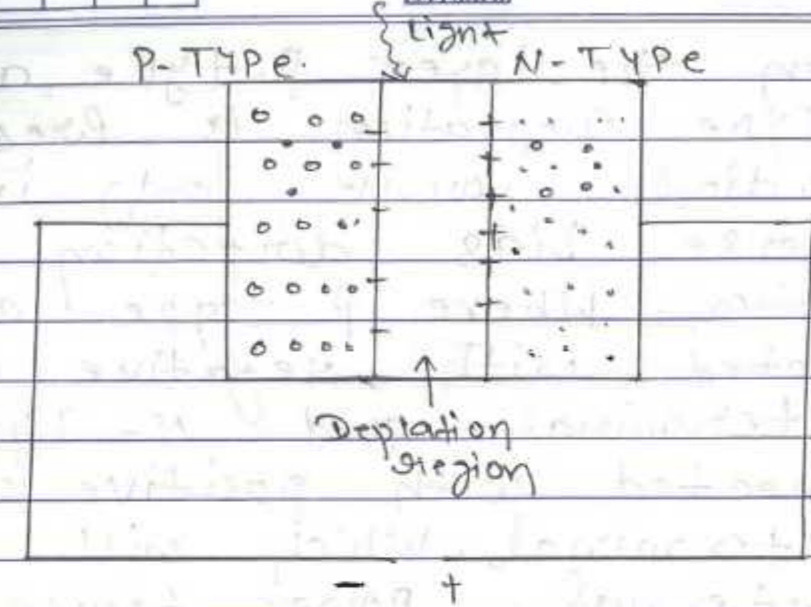 Light
P-TYPe. N-TYPe
Deplation
region
- +